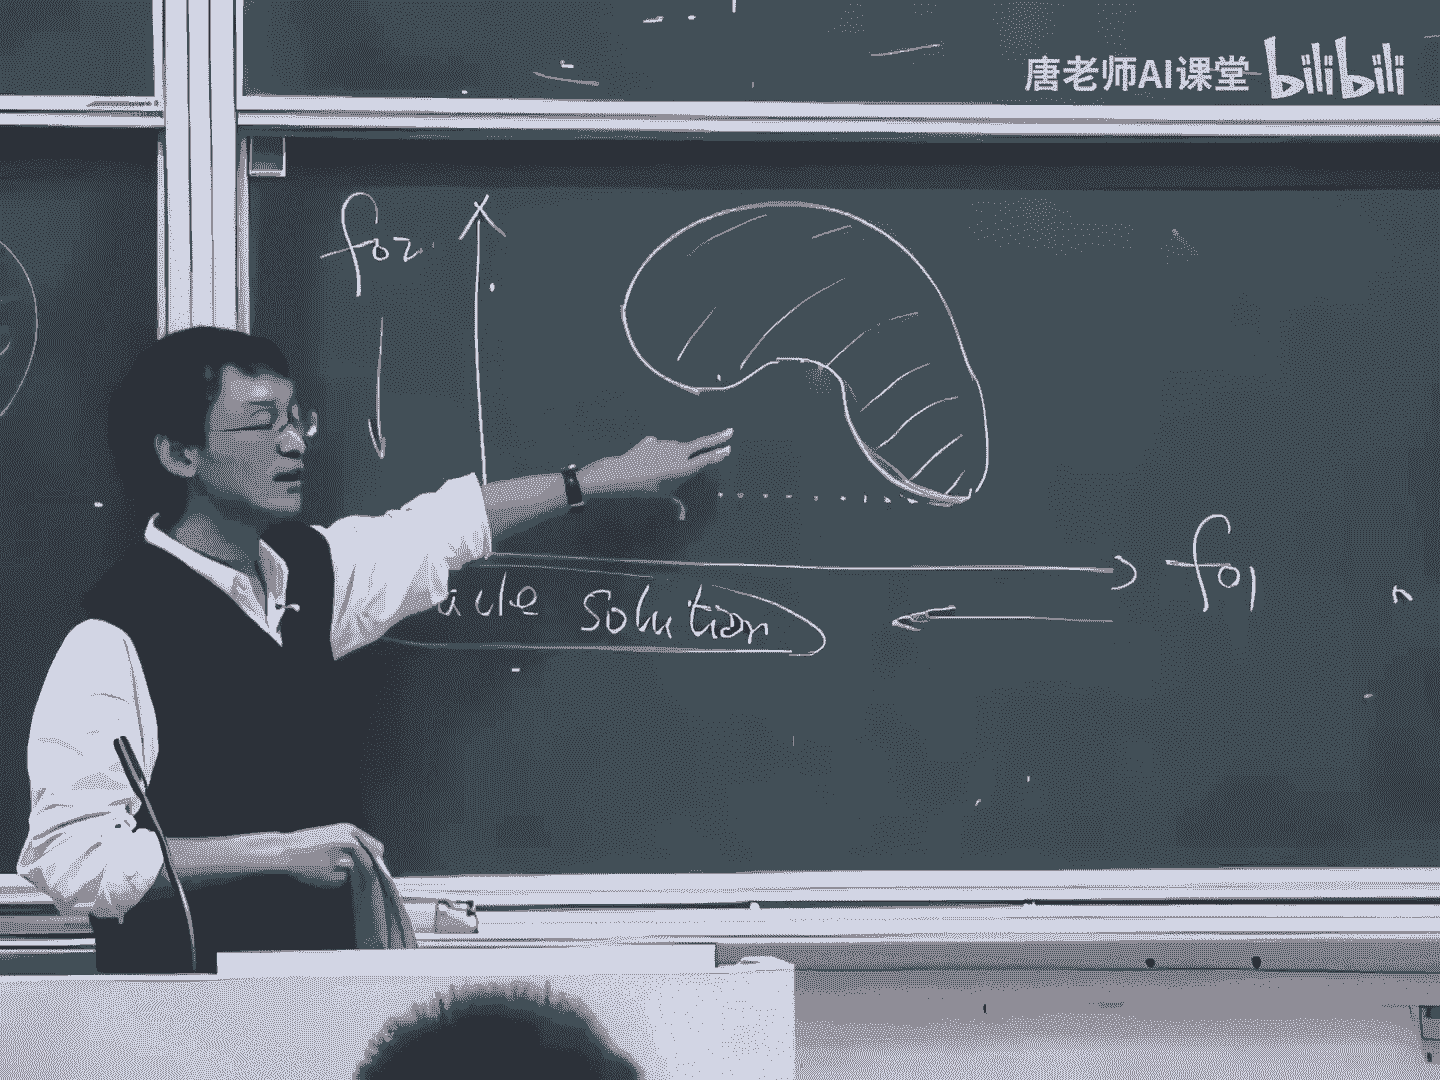 唐老师AI课堂 bilibili
f02
f01
solution